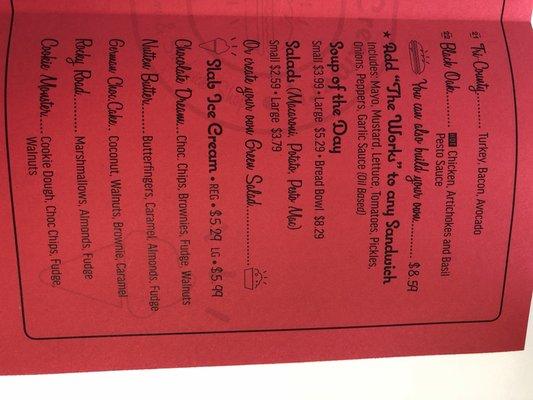 21 Tri-County......... Turkey, Bacon, Avocado
22 Black Oak......... Chicken, Artichokes and Basil
Pesto Sauce
You can also build your own.......... $8.59
★ Add "The Works" to any Sandwich
Includes: Mayo, Mustard, Lettuce, Tomatoes, Pickles,
Onions, Peppers, Garlic Sauce (Oil Based)
Soup of the Day
Small $3.99 • Large $5.29 • Bread Bowl $8.29
Salads (Macaroni, Potato, Pesto Mac)
Small $2.59 • Large $3.79
Or create your own Green Salad..........
Slab Ice Cream • REG • $5.29 LG • $5.99
Chocolate Dream... Choc. Chips, Brownies, Fudge, Walnuts
Nutten Butter......... Butterfingers, Caramel, Almonds, Fudge
German Choc. Cake.. Coconut, Walnuts, Brownie, Caramel
Rocky Road.......... Marshmallows, Almonds, Fudge
Cookie Monster.... Cookie Dough, Choc Chips, Fudge,
Walnuts